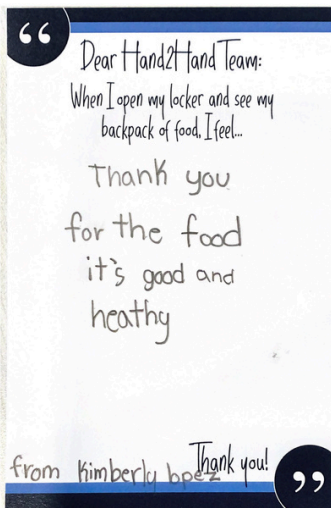 “
Dear Hand2Hand Team:
When I open my locker and see my
backpack of food, I feel...
Thank you
for the food
it's good and
heathy
Thank you!
from Kimberly lopez
”